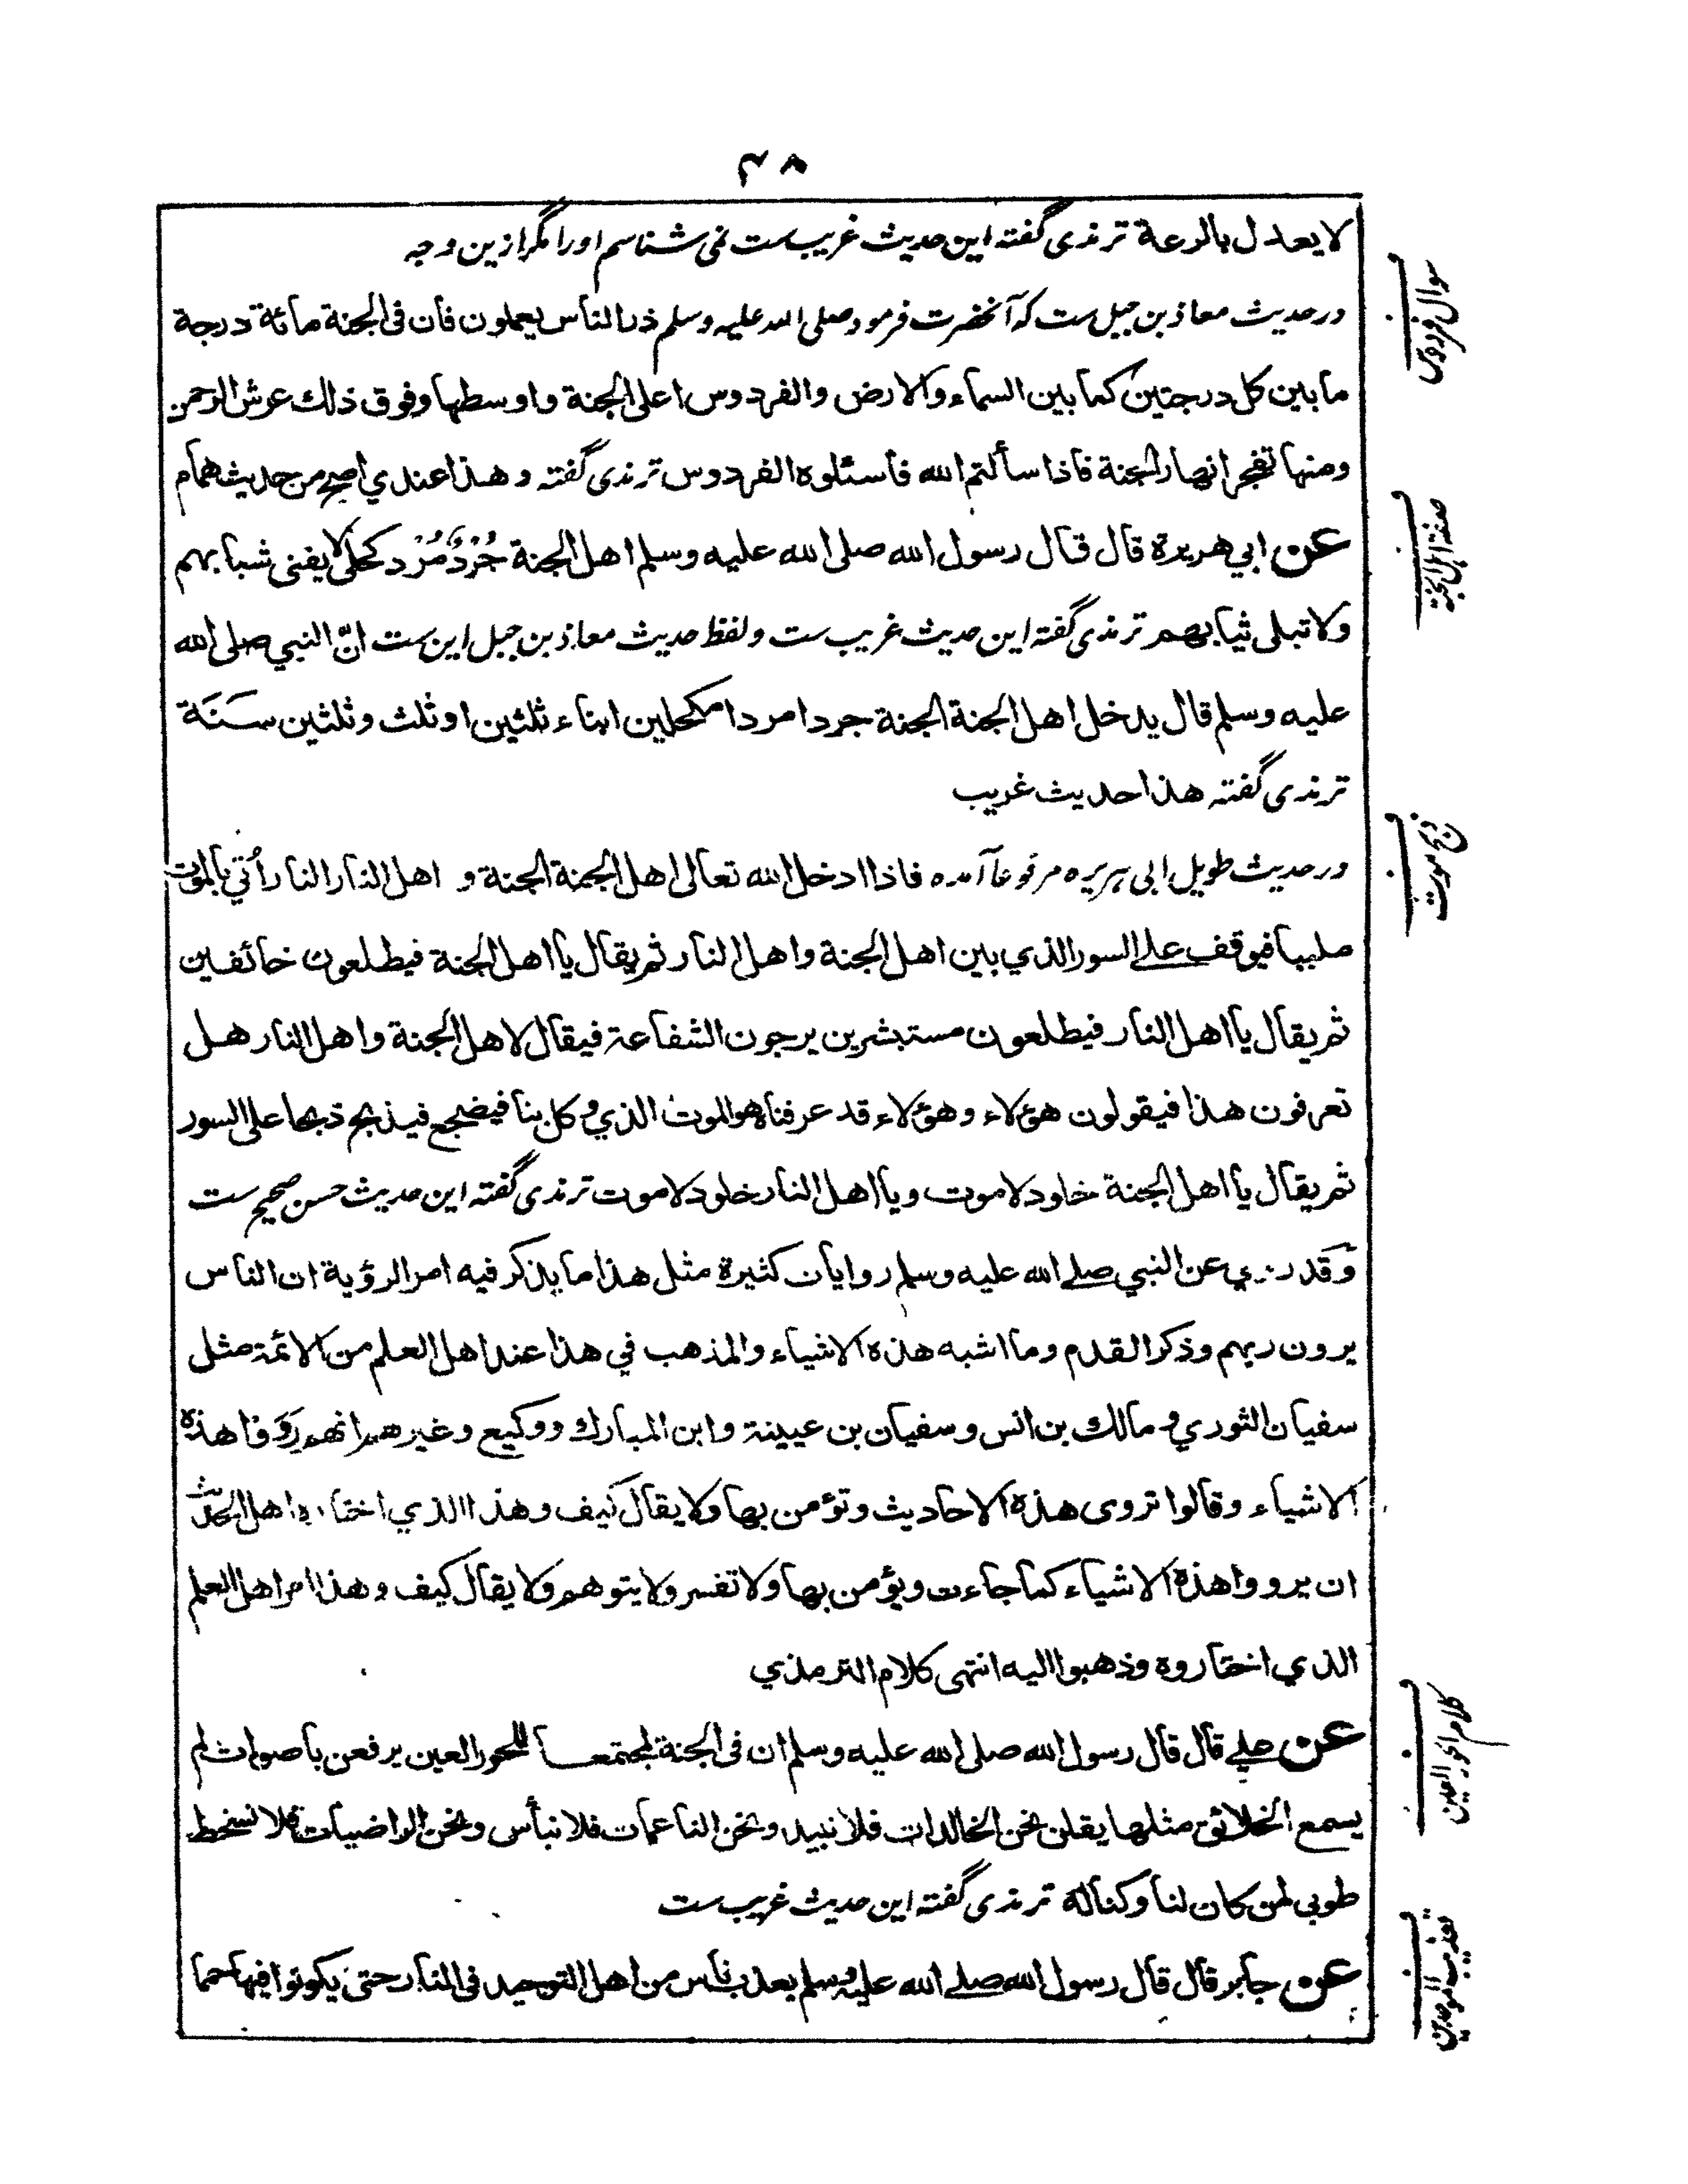 ۴۸
لا يعدل بالرعة ترمذی گفته این حدیث غریب ست نمی شناسم اورا مگر ازین وجه
سوال فردوس
در حدیث معاذ بن جبل ست که آنحضرت فرمود صلی الله علیه وسلم ذر الناس يعملون فان فى الجنة مائة درجة
ما بين كل درجتين كما بين السماء والارض والفردوس اعلى الجنة واوسطها وفوق ذلك عرش الرحمن
ومنها تفجر انهار الجنة فاذا سألتم الله فاسئلوه الفردوس ترمذی گفته وهذا عندي اصح من حديث همام
صفة اہل الجنة
عن ابي هريرة قال قال رسول الله صلى الله عليه وسلم اهل الجنة جُرْدٌ مُرْد كحلى لا يفنى شبابهم
ولا تبلى ثيابهم ترمذی گفته این حدیث غریب ست ولفظ حدیث معاذ بن جبل این ست انّ النبي صلى الله
عليه وسلم قال يدخل اهل الجنة الجنة جردا مردا مكحلين ابناء ثلثين او ثلث وثلثين سَنَة
ترمذی گفته هذا حديث غريب
ذبح موت
در حدیث طویل ابی ہریرہ مرفوعاً آمده فاذا ادخل الله تعالى اهل الجنة الجنة و اهل النار النار أُتي بالموت
ملببا فيوقف على السور الذي بين اهل الجنة واهل النار ثم يقال يا اهل الجنة فيطلعون خائفين
ثم يقال يا اهل النار فيطلعون مستبشرين يرجون الشفاعة فيقال لاهل الجنة واهل النار هل
تعرفون هذا فيقولون هؤلاء وهؤلاء قد عرفناه هو الموت الذي وكل بنا فيضجع فيذبح ذبحا على السور
ثم يقال يا اهل الجنة خلود لا موت ويا اهل النار خلود لا موت ترمذی گفته این حدیث حسن صحیح ست
وَقد روي عن النبي صلے الله عليه وسلم روايات كثيرة مثل هذا ما يذكر فيه امر الرؤية ان الناس
يرون ربهم وذكر القدم وما اشبه هذه الاشياء والمذهب في هذا عند اهل العلم من الائمة مثل
سفيان الثوري ومالك بن انس وسفيان بن عيينة وابن المبارك ووكيع وغيرهم انهم رَوَوا هذه
الاشياء وقالوا تروى هذه الاحاديث وتؤمن بها ولا يقال كيف وهذا الذي اختاره اهل الحديث
ان يرووا هذه الاشياء كما جاءت ويؤمن بها ولا تفسر ولا يتوهم ولا يقال كيف وهذا امر اهل العلم
الذي اختاروه وذهبوا اليه انتهى كلام الترمذي
كلام حور العين
عن علے قال قال رسول الله صلى الله عليه وسلم ان فى الجنة لمجتمعا للحور العين يرفعن باصوات لم
يسمع الخلائق مثلها يقلن نحن الخالدات فلا نبيد ونحن الناعمات فلا نبأس ونحن الراضيات فلا نسخط
طوبى لمن كان لنا وكنا له ترمذی گفته این حدیث غریب ست
تعذيب الموحدين
عن جابر قال قال رسول الله صلے الله عليه وسلم يعذب ناس من اهل التوحيد فى النار حتى يكونوا فيها حمما